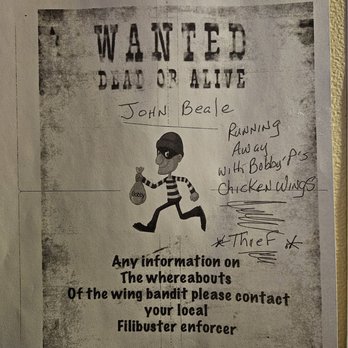 WANTED
DEAD OR ALIVE
JOHN Beale
RUNNING
AWAY
with Bobby P's
CHICKEN WINGS
* THIEF *
Any information on
The whereabouts
Of the wing bandit please contact
your local
Filibuster enforcer